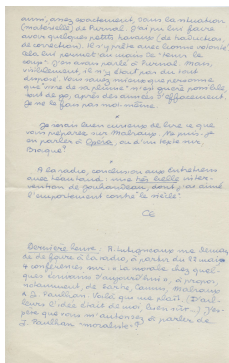 ainsi, assez exactement, dans la situation
(matérielle) de Pernal. J'ai pu lui faire
avoir quelques petits travaux (de traduction,
de correction). Il s'y prête avec bonne volonté
cela lui permet au moins de "tenir le
coup". J'en avais parlé à Pernal. Mais,
visiblement, il n'y était pas du tout
disposé. Vous savez mieux que personne
que "vivre de sa plume" n'est guère possible
tout de go, après des années d'effacement
Je ne le fais pas moi-même.
*
Je serais bien curieux de lire ce que
vous préparez sur Malraux. Ne puis-je
en parler à ou d'un texte sur
Braque?
*
A la radio, conclusion aux entretiens
avec Léautaud: une très belle inter-
vention de dont j'ai aimé
l'emportement contre le siècle!
Dernière heure: A
de de figure à la radio, à partir du 22 mai
4 conférences sur: "La morale chez quel-
ques écrivains d'aujourd'hui", à propos,
notamment, de Sartre, Camus, Malraux
& J. Paulhan. Voilà qui me plaît. (D'ail-
leurs l'idée était de moi, bien sûr...) J'es-
père que vous m'autorisez à parler de
J. Paulhan "moraliste"?